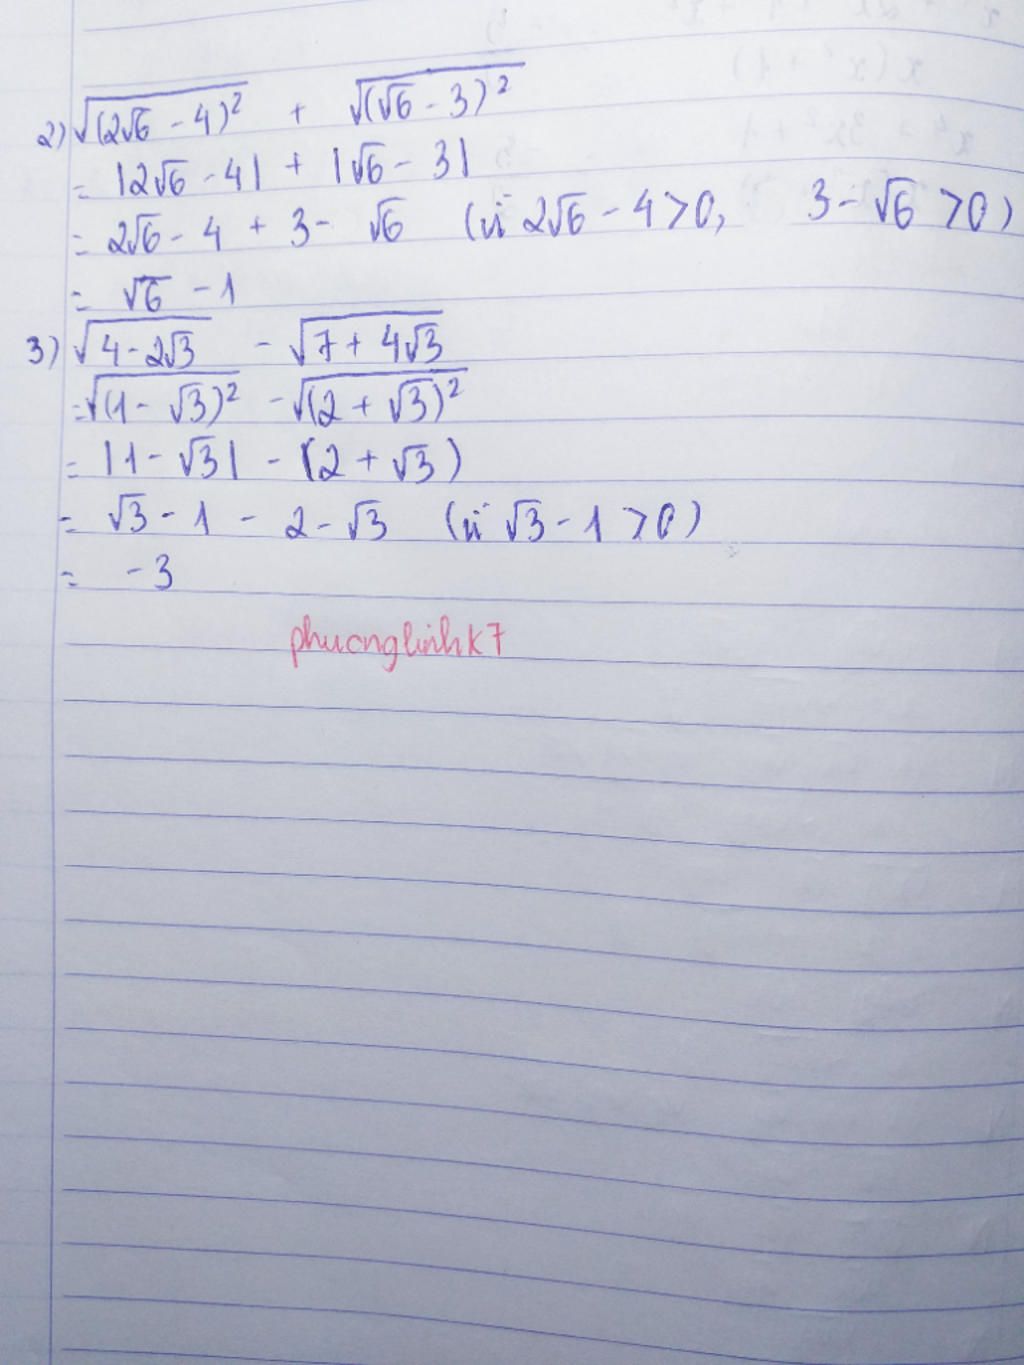 2) √(2√6 - 4)² + √(√6 - 3)²
= |2√6 - 4| + |√6 - 3|
= 2√6 - 4 + 3 - √6 (vì 2√6 - 4 > 0, 3 - √6 > 0)
= √6 - 1
3) √4 - 2√3 - √7 + 4√3
= √(1 - √3)² - √(2 + √3)²
= |1 - √3| - (2 + √3)
= √3 - 1 - 2 - √3 (vì √3 - 1 > 0)
= -3
phuonglinhk7